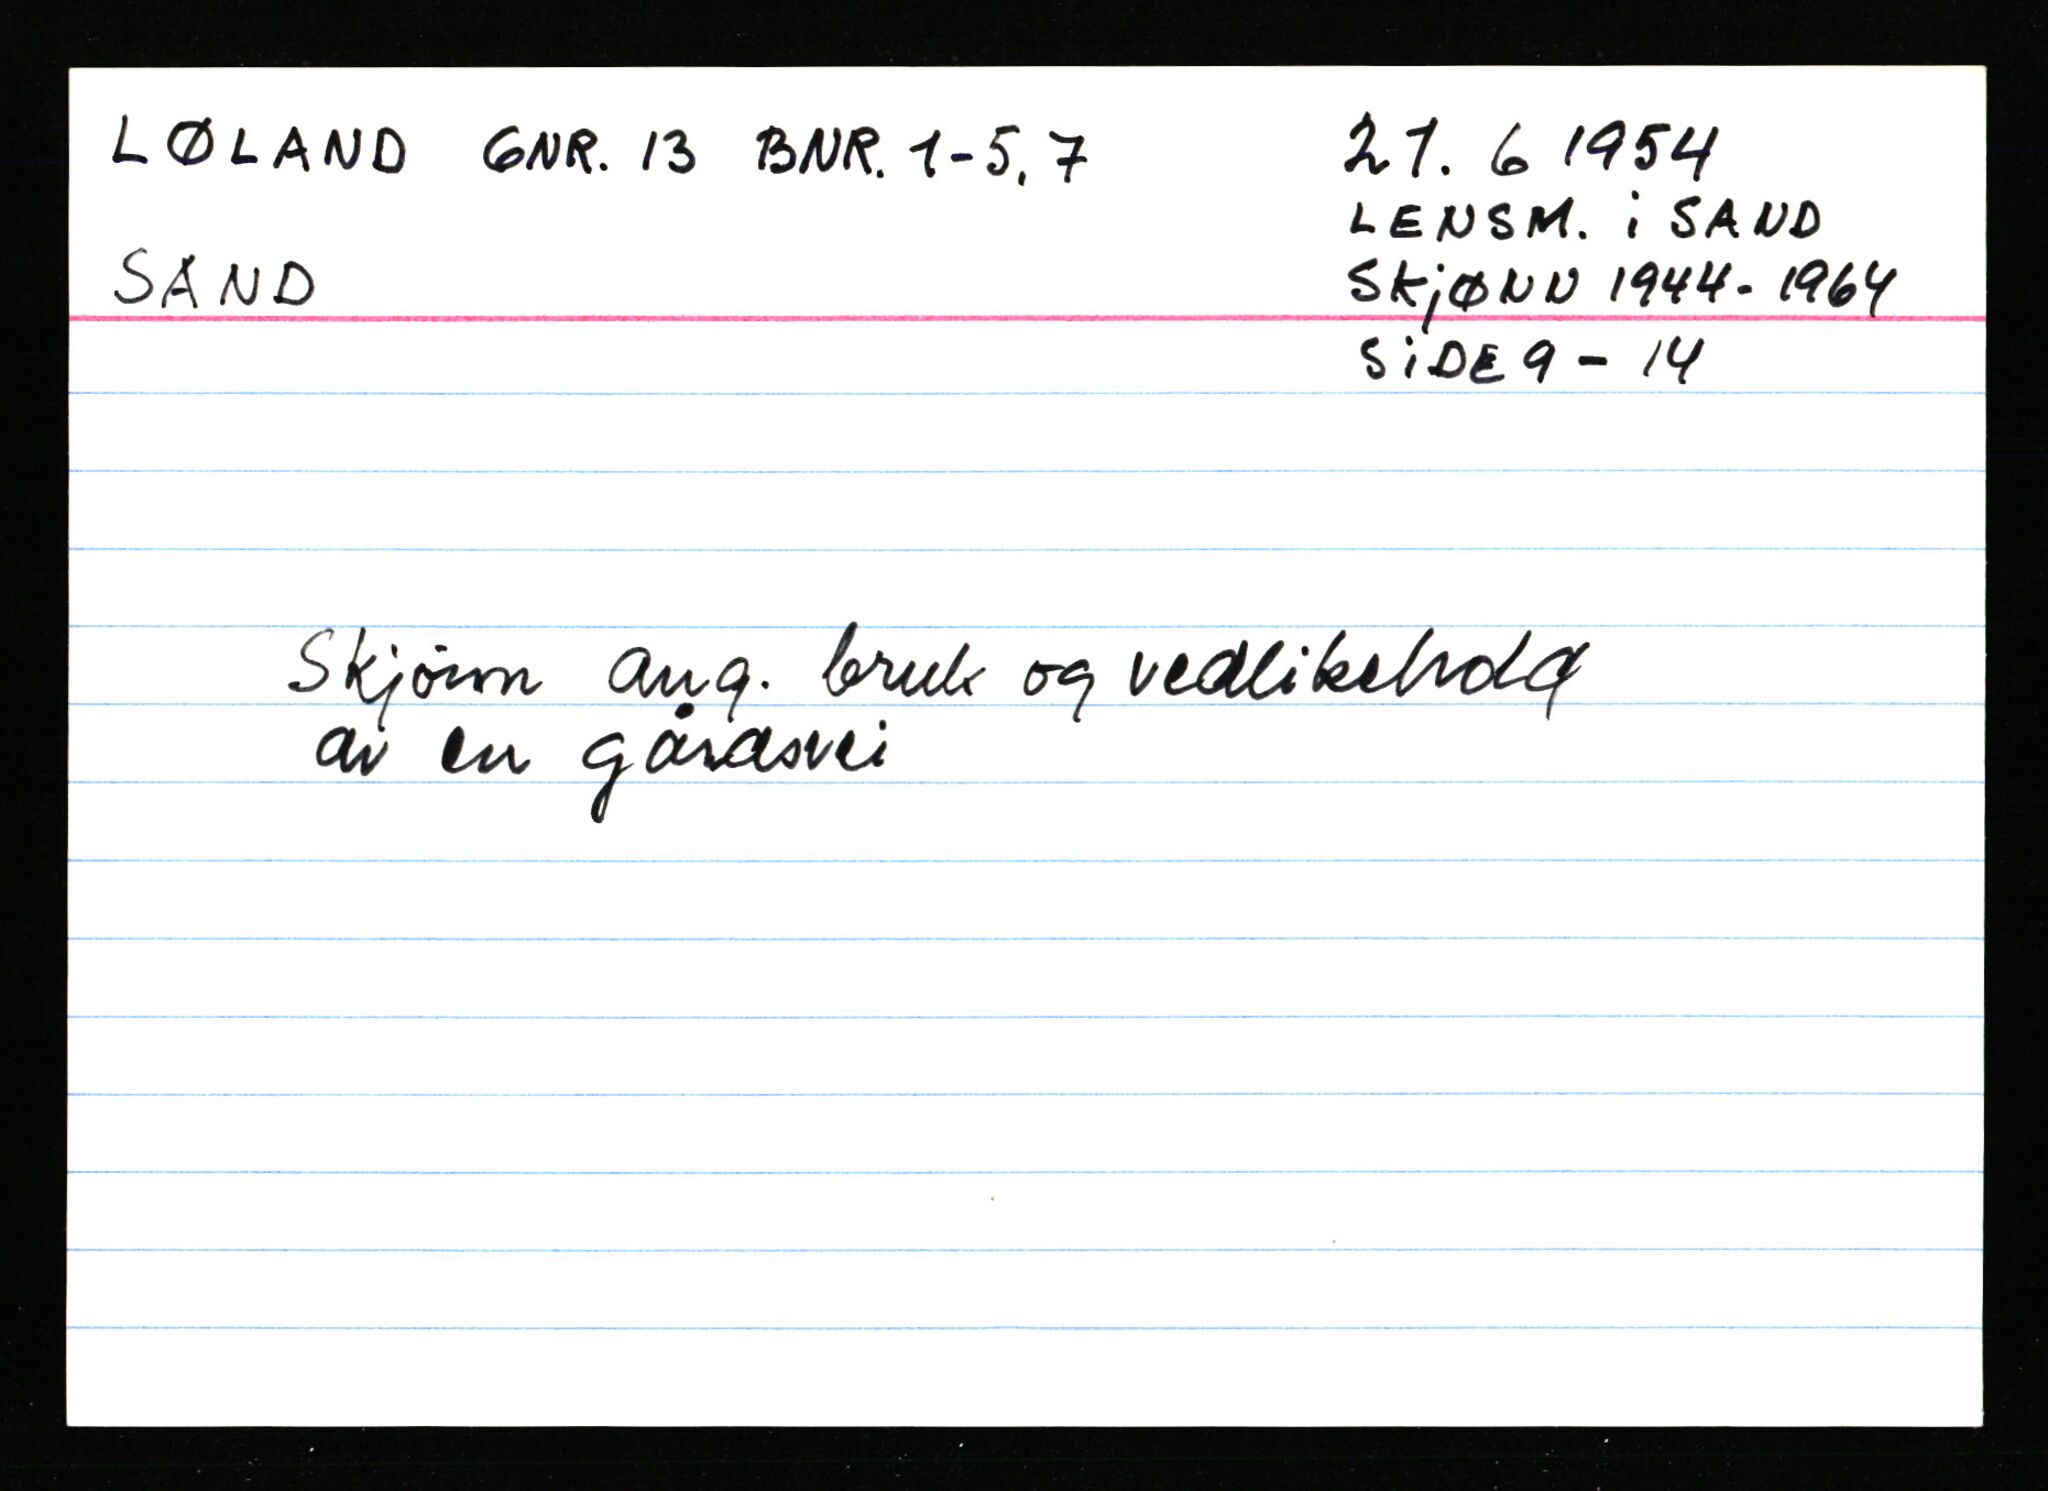 LØLAND GNR. 13 BNR. 1-5, 7
21. 6 1954
LENSM. i SAND
SAND
SKjØNN 1944-1964
SiDE 9 - 14
Skjønn ang. bruk og vedlikehold
av en gårdsvei